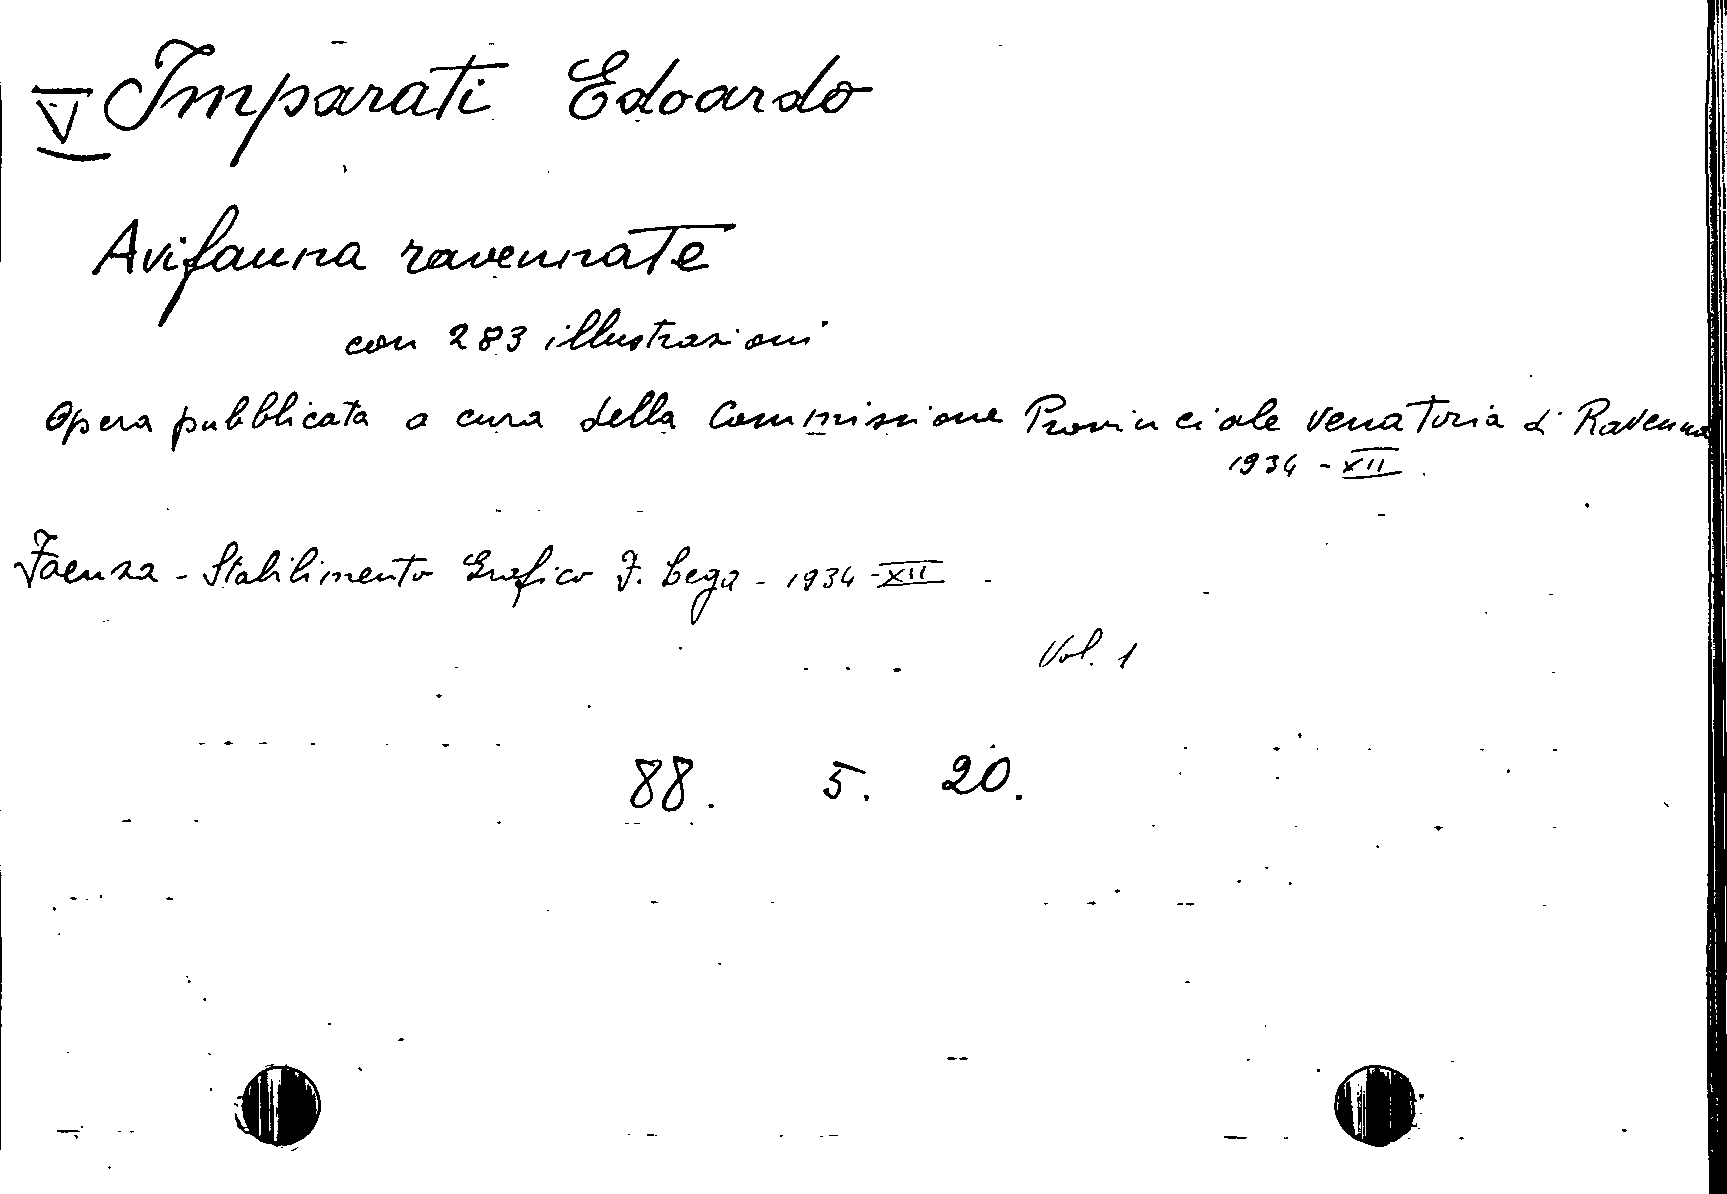 V Imparati Edoardo
Avifauna ravennate
con 283 illustrazioni
Opera pubblicata a cura della Commissione Provinciale venatoria di Ravenna
1934 - XII.
Faenza - Stabilimento Grafico F. Lega - 1934 - XII -
Vol. 1
88. 5. 20.